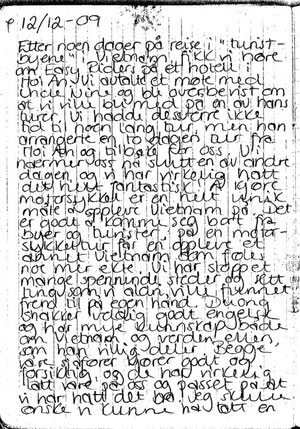 12/12-09
Etter noen dager på reise i "turist-
byene" i Vietnam fikk vi høre
om Easy Riders på et hotell i
Hoi An. Vi avtalte et møte med
Uncle Nine og ble overbevist om
at vi ville bli med på en av hans
turer. Vi hadde dessverre ikke
tid til noen lang tur, men han
arrangerte en to dagers tur fra
Hoi An og tilbake for oss. Vi
nærmer oss nå slutten av andre
dagen og vi har virkelig hatt
det helt fantastisk. Å kjøre
motorsykkel er en helt unik
måte å oppleve Vietnam på. Det
er godt å komme seg bort fra
byer og turister, på en motor-
sykkeltur får en oppleve et
annet Vietnam som føles
noe mer ekte. Vi har stoppet
mange spennende steder og sett
ting som vi aldri ville funnet
frem til på egen hånd. Duong
snakker veldig godt engelsk
og har mye kunnskap både
om Vietnam og verden ellers,
som han villig deler. Begge
våre sjåfører kjører godt og
forsiktig og de har virkelig
tatt vare på oss og passet på at
vi har hatt det bra. Jeg skulle
ønske vi kunne ha tatt en